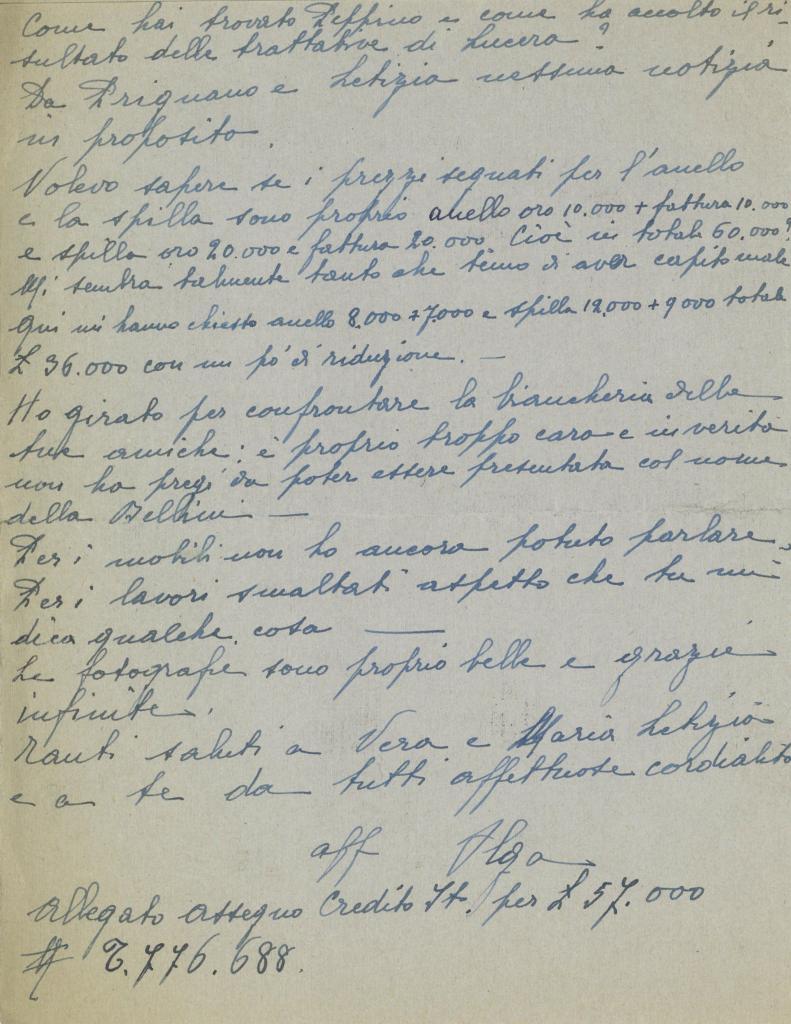 Come hai trovato Peppino e come ha accolto il ri-
sultato delle trattative di Lucera?
Da Prignano e Letizia nessuna notizia
in proposito.
Volevo sapere se i prezzi segnati per l'anello
e la spilla sono proprio anello oro 10.000 + fattura 10.000
e spilla oro 20.000 e fattura 20.000. Cioè in totale 60.000?
Mi sembra talmente tanto che temo di aver capito male
Qui mi hanno chiesto anello 8.000 + 7.000 e spilla 12.000 + 9000 totale
£ 36.000 con un pò di riduzione. —
Ho girato per confrontare la biancheria delle
tue amiche: è proprio troppo cara e in verità
non ha pregi da poter essere presentata col nome
della Bellini —
Per i mobili non ho ancora potuto parlare.
Per i lavori smaltati aspetto che tu mi
dica qualche cosa —
Le fotografie sono proprio belle e grazie
infinite.
Tanti saluti a Vera e Maria Letizia
e a te da tutti affettuose cordialità
aff Olga
Allegato assegno Credito It. per £ 57.000
# T.776.688.